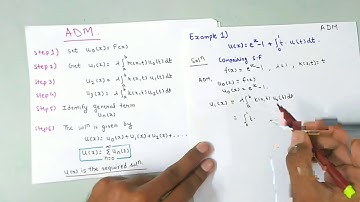 ADM.
Step 1) Set u₀(x) = f(x)
Step 2) Get u₁(x) = λ∫ k(x,t) u₀(t) dt
Step 3) u₂(x) = λ∫ k(x,t) u₁(t) dt
Step 4) u₃(x) = λ∫ k(x,t) u₂(t) dt
Step 5) Identify general term
uₙ(x)
Step 6) The solⁿ is given by
u(x) = u₀(x) + u₁(x) + u₂(x) + ....
u(x) = Σ uₙ(x)
u(x) is the required solⁿ.
ADM
Example 1)
u(x) = eˣ - 1 + ∫ t. u(t) dt.
Solⁿ Comparing S.F
f(x) = eˣ - 1, λ = 1, k(x,t) = t
ADM, u₀(x) = f(x)
u₀(x) = eˣ - 1.
u₁(x) = λ∫ k(x,t) u₀(t) dt
= ∫ t.